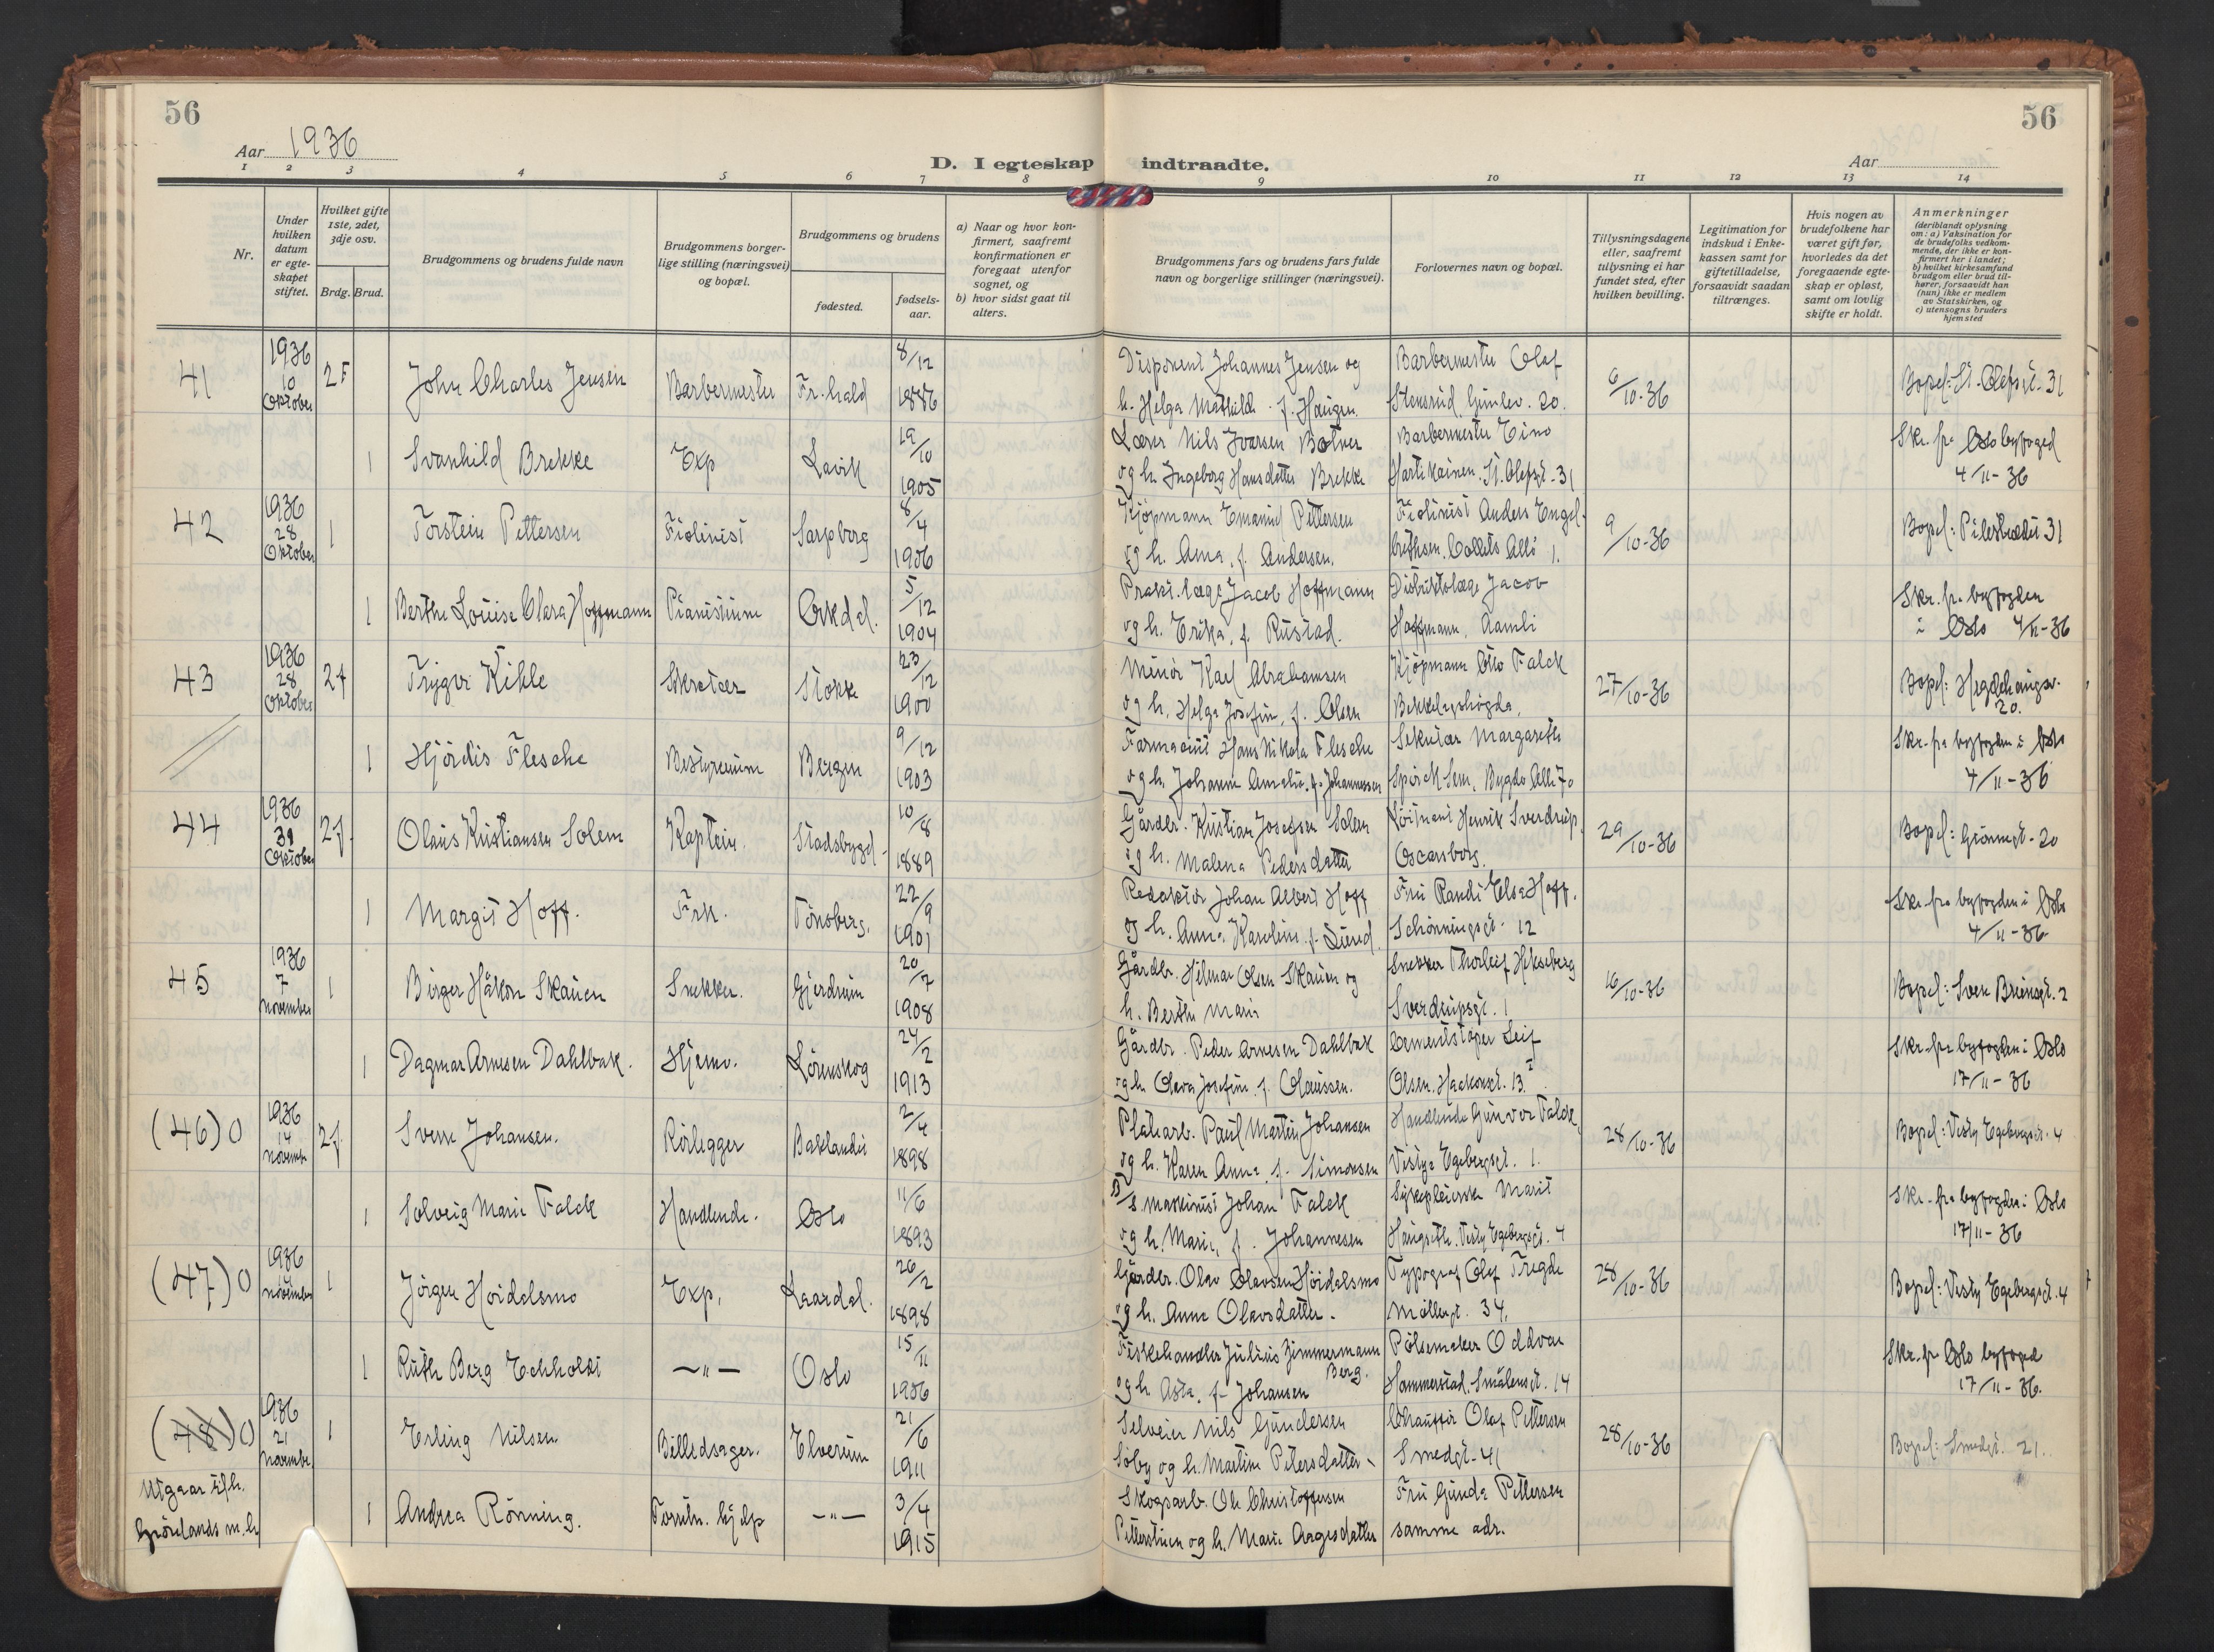 56
56
Aar 1936
D. I egteskap indtraadte.
Aar
1 2 3 4 5 6 7 8 9 10 11 12 13 14
Nr.
Under
hvilken
datum
er egte-
skapet
stiftet.
Hvilket gifte
1ste, 2det,
3dje osv.
Brdg. Brud.
Brudgommens og brudens fulde navn
Brudgommens borger-
lige stilling (næringsvei)
og bopæl.
Brudgommens og brudens
fødested.
fødsels-
aar.
a) Naar og hvor kon-
firmert, saafremt
konfirmationen er
foregaat utenfor
sognet, og
b) hvor sidst gaat til
alters.
Brudgommens fars og brudens fars fulde
navn og borgerlige stillinger (næringsvei).
Forlovernes navn og bopæl.
Tillysningsdagene
eller, saafremt
tillysning ei har
fundet sted, efter
hvilken bevilling.
Legitimation for
indskud i Enke-
kassen samt for
giftetilladelse,
forsaavidt saadan
tiltrænges.
Hvis nogen av
brudefolkene har
været gift før,
hvorledes da det
foregaaende egte-
skap er opløst,
samt om lovlig
skifte er holdt.
Anmerkninger
(deriblandt oplysning
om: a) Vaksination for
de brudefolks vedkom-
mende, der ikke er kon-
firmert her i landet;
b) hvilket kirkesamfund
brudgom eller brud til-
hører, forsaavidt han
(hun) ikke er medlem
av Statskirken, og
c) utensogns bruders
hjemsted
41
1936
10
Oktober
2 F
John Charles Jensen
Barbermester
Fr.hald
8/12
1886
Disponent Johannes Jensen og
h. Helga Mathilde f. Haugen.
Barbermester Olaf
Stensrud, Gimlev. 20.
6/10-36
Bopel: St. Olafsgt. 31
1
Svanhild Brekke
Exp
Lavik
19/10
1905
Lærer Nils Iversen Botner
og h. Ingeborg Hansdatter Brekke
Barbermester Eino
Hartikainen. St. Olafsgt. 31
Skr. fra Oslo byfoged
4/11-36
42
1936
28
Oktober
1
Torstein Pettersen
Fiolinist
Sarpsborg
8/4
1906
Kjöpmann Emanuel Pettersen
og h. Anna, f. Andersen.
Fiolinist Anders Engel-
brethsen. Colletts Allé 1.
9/10-36
Bopel: Pilestrædet 31
1
Berthe Louise Clara Hoffmann
Pianistinne
Orkdal.
5/12
1904
Prakt. læge Jacob Hoffmann
og h. Erika, f. Rustad.
Distriktslæge Jacob
Hoffmann, Aamli
Skr. fra byfogden
i Oslo 4/11-36
43
1936
28
Oktober
2 f
Trygve Kihle
Sekretær
Stokke
23/12
1900
Minør Karl Abrahamsen
og h. Helga Josefine, f. Olsen
Kjöpmann Otto Falck
Bekkelagshögda.
27/10-36
Bopel: Hegdehaugsv.
20.
1
Hjördis Flesche
Bestyrerinne
Bergen
9/12
1903
Farmaceut Hans Nikolai Flesche
og h. Johanne Amalie, f. Johannessen
Sekretær Margareth
Spörck Sem, Bygdø Allé 70
Skr. fra byfogden i Oslo
4/11-36
44
1936
31
Oktober
2 f.
Olaus Kristiansen Solem
Kaptein.
Stadsbygd
10/8
1889
Gårdbr. Kristian Josefsen Solem
og h. Malena Pedersdatter
Löitnant Henrik Sverdrup,
Oscarsborg.
29/10-36
Bopel: Grönnegt. 20
1
Margit Hoff.
Frk.
Tönsberg.
22/9
1901
Redaktör Johan Albert Hoff
og h. Anna Karoline f. Lund.
Fru Randi Elsa Hoff.
Schönningsgt. 12
Skr. fra byfogden i Oslo
4/11-36
45
1936
7
november
1
Birger Håkon Skauen
Snekker.
Gjerdrum
20/7
1908
Gårdbr. Hilmar Olsen Skauen og
h. Berthe Marie
Snekker Thorleif Hekseberg
Sverdrupsgt. 1
16/10-36
Bopel: Sven Bruunsgt. 2
1
Dagmar Arnesen Dahlbak.
Hjemv.
Lörenskog
24/2
1913
Gårdbr. Peder Arnesen Dahlbak
og h. Oleva Josefine f. Olaussen.
Cementstöper Leif
Olsen. Haakonsgt. 13.
Skr. fra byfogden i Oslo
17/11-36
(46) 0
1936
14
novembr
2 f.
Sverre Johansen.
Rörlegger
Baklandet
2/4
1898
Platearb. Paul Martin Johansen
og h. Karen Anna, f. Simonsen
Handlende Gunvor Falck,
Vestye Egebergsgt. 1.
28/10-36
Bopel: Vestly Egebergsgt. 4
1
Solveig Marie Falck
Handlende.
Oslo
11/6
1893
D/S maskinist Johan Falck
og h. Marie, f. Johannesen
Sykepleierske Marit
Haugseth. Vestly Egebergsgt. 4
Skr. fra byfogden i Oslo
17/11-36
(47) 0
1936
november
1
Jörgen Höidalsmo
Exp.
Laardal.
26/2
1898
Gårdbr. Olav Olavsen Höidalsmo
og h. Anne Olavsdatter.
Typograf Olaf Tregde
Møllergt. 34.
28/10-36
Bopel: Vestly Egebergsgt. 4
1
Ruth Berg Echholdt
— " —
Oslo
15/11
1906
Fiskehandler Julius Zimmermann
Berg.
og h. Asta. f. Johansen
Pölsemaker Oddvar
Hammerstad. Smålensgt. 14
Skr. fra Oslo byfoged
17/11-36.
(48) 0
1936
21
novembr.
1
Erling Nilsen.
Billedskjær.
Elverum
21/6
1911
Selveier Nils Gundersen
Söby og h. Martine Petersdatter
Chauffør Olaf Pettersen
Smedgt. 41
28/10-36
Bopel: Smedgt. 21.
Utgaar
Grönlands m.h.
1
Andrea Rönning.
hjelp
— " —
3/4
1915
Skogsarb. Ole Christoffersen
og h. Marie Aagesdatter
Fru Gunda Pettersen
samme adr.